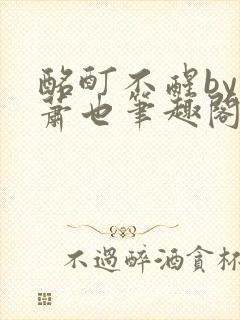 酩酊不醒by
萧也笔趣阁
不過醉酒貪杯